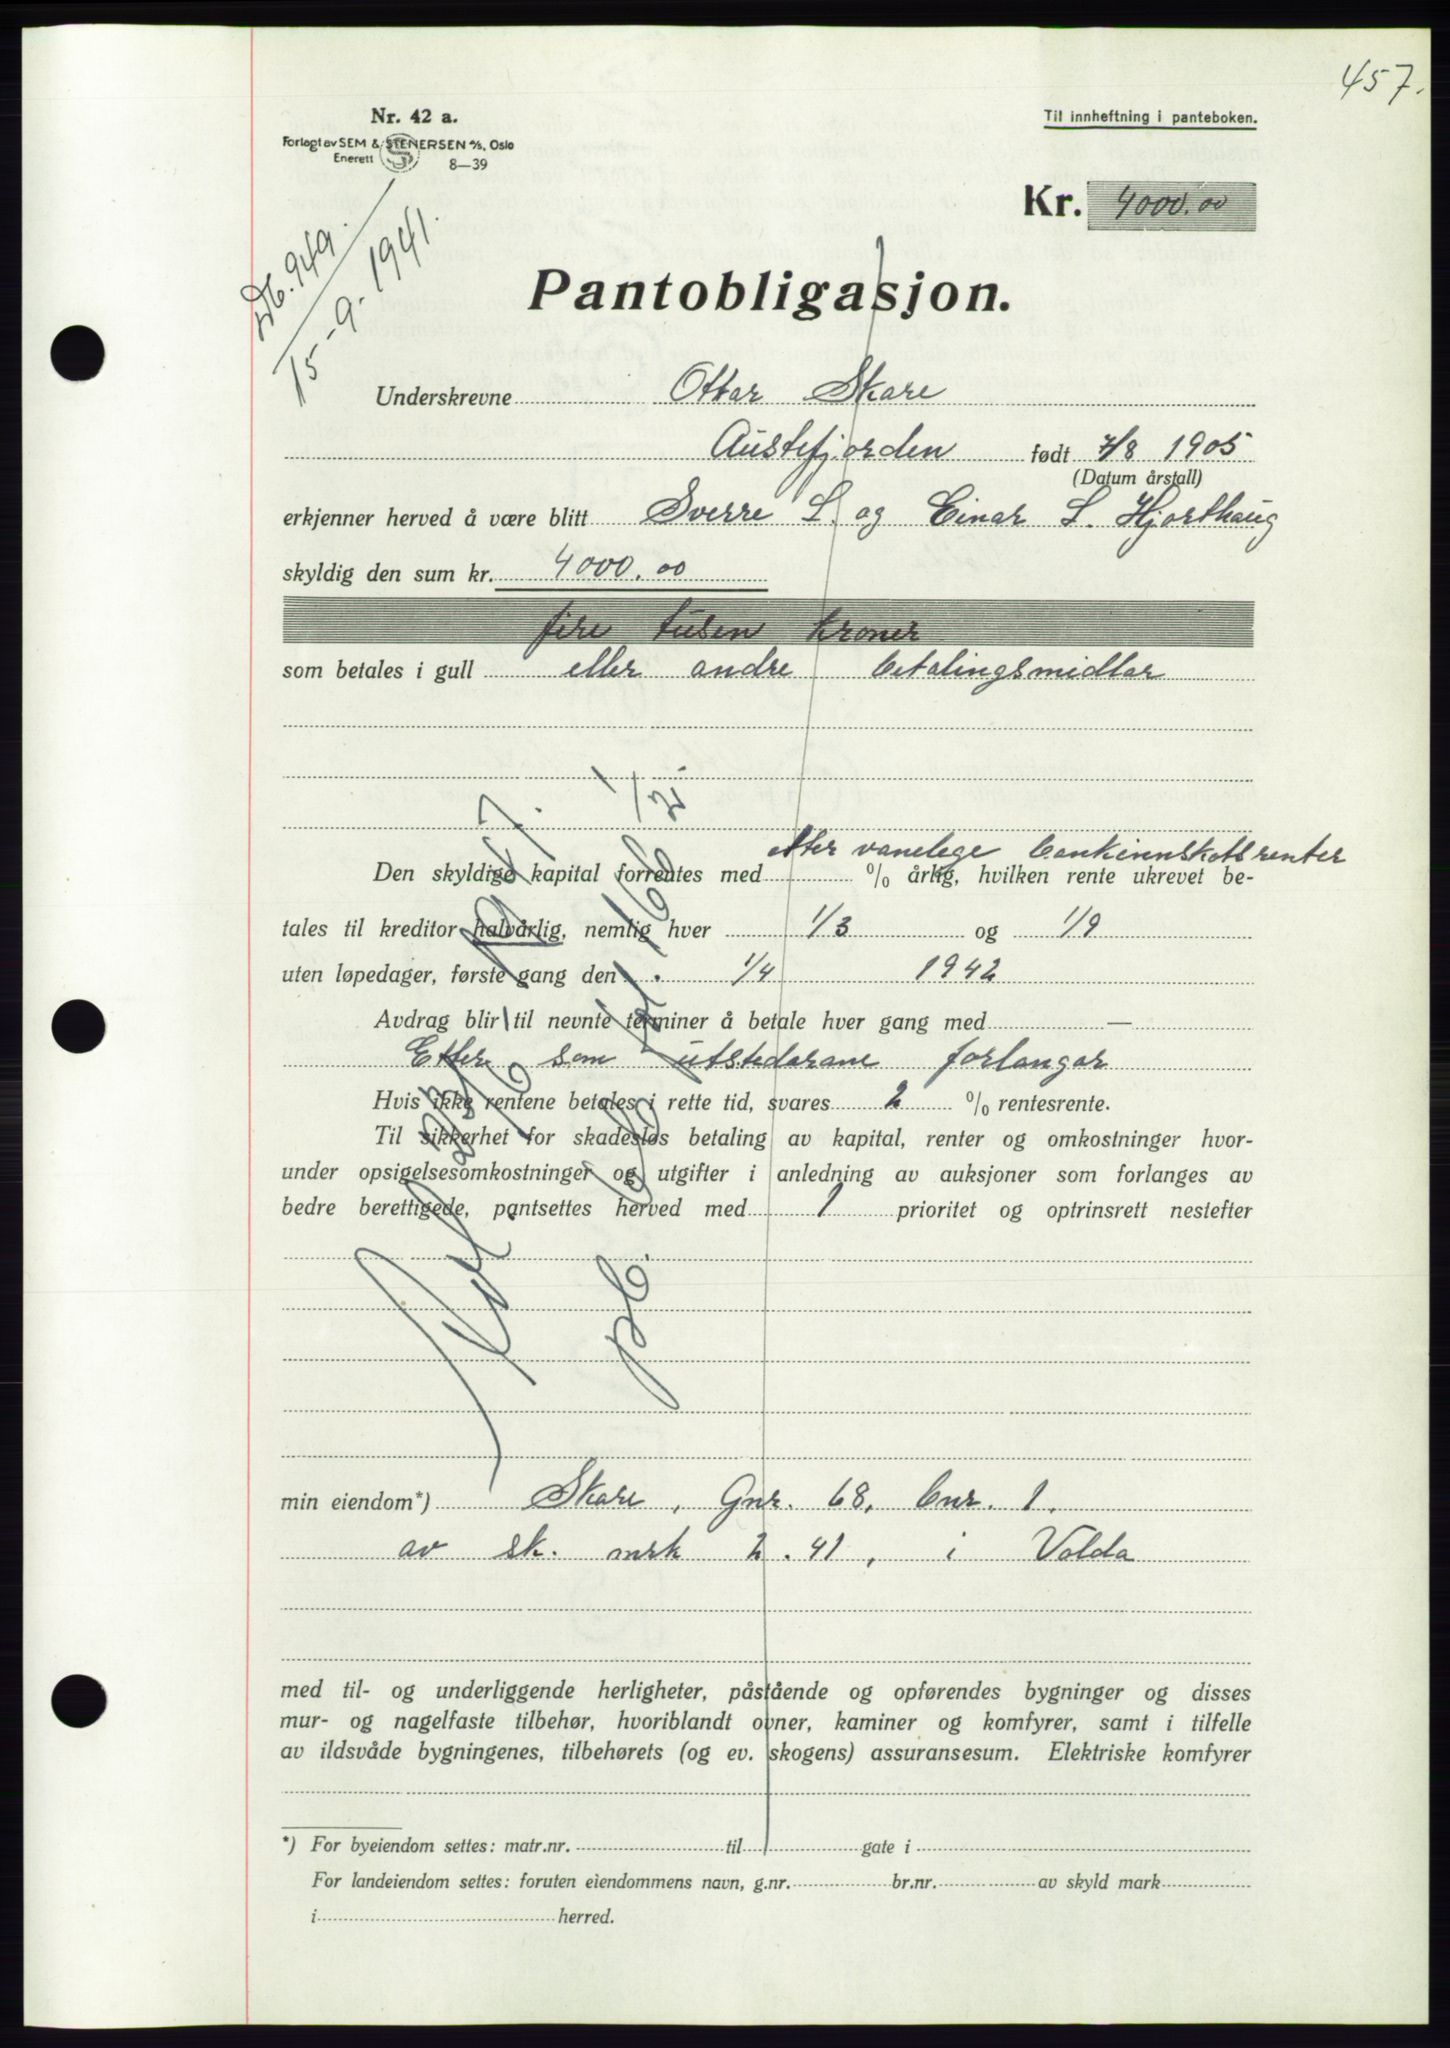 457.
Nr. 42 a.
Forlagt av SEM & STENERSEN A/S, Oslo
Enerett 8—39
Til innheftning i panteboken.
Kr. 4000.00
Db. 949.
15-9-1941.
Pantobligasjon.
Underskrevne Ottar Skare
Austefjorden født 7/8 1905
(Datum årstall)
erkjenner herved å være blitt Sverre L. og Einar L. Hjorthaug
skyldig den sum kr. 4000.00
fire tusen kroner
som betales i gull eller andre betalingsmidlar
etter vanelege bankinnskotsrenter
Den skyldige kapital forrentes med % årlig, hvilken rente ukrevet be-
tales til kreditor halvårlig, nemlig hver 1/3 og 1/9
uten løpedager, første gang den 1/4 1942
Avdrag blir til nevnte terminer å betale hver gang med —
Etter som utstedarane forlangar
Hvis ikke rentene betales i rette tid, svares 2 % rentesrente.
Til sikkerhet for skadesløs betaling av kapital, renter og omkostninger hvor-
under opsigelsesomkostninger og utgifter i anledning av auksjoner som forlanges av
bedre berettigede, pantsettes herved med 1 prioritet og optrinsrett nestefter
min eiendom*) Skare, Gnr. 68, bnr. 1.
av sk. mrk 2.41, i Volda
med til- og underliggende herligheter, påstående og opførendes bygninger og disses
mur- og nagelfaste tilbehør, hvoriblandt ovner, kaminer og komfyrer, samt i tilfelle
av ildsvåde bygningenes, tilbehørets (og ev. skogens) assuransesum. Elektriske komfyrer
*) For byeiendom settes: matr.nr. til gate i
For landeiendom settes: foruten eiendommens navn, g.nr. br.nr. av skyld mark
i herred.